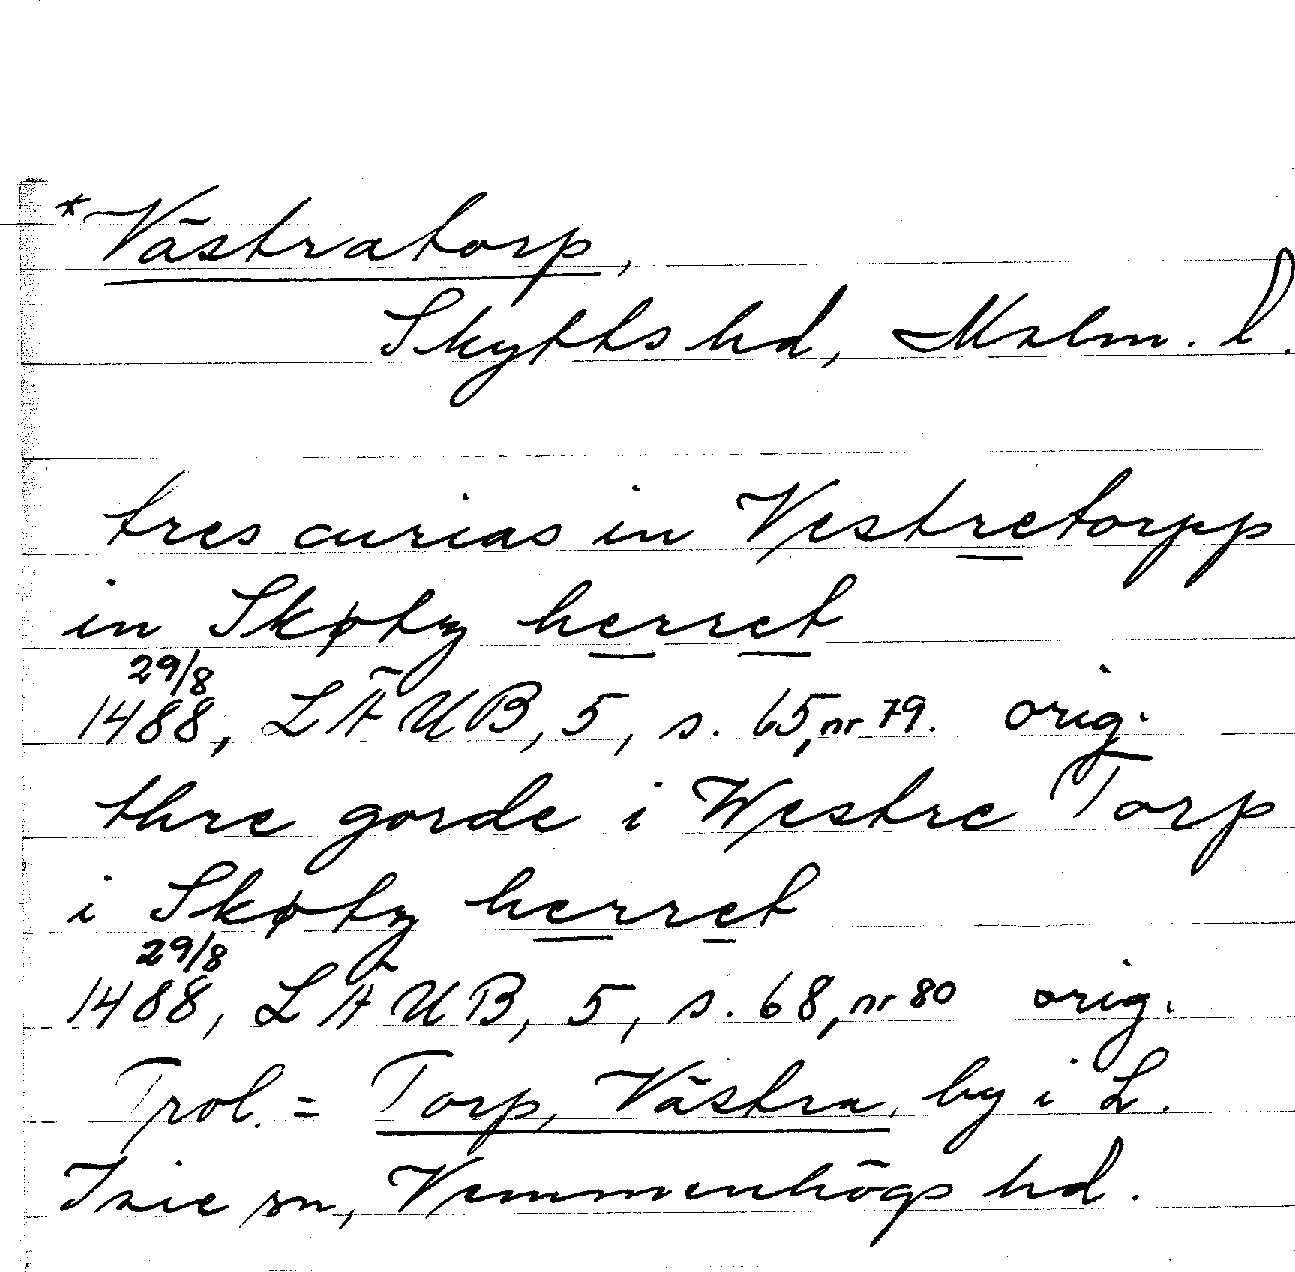 *Västratorp,
Skytts hd, Malm. l.
tres curias in Vestretorpp
in Skøtz herret
29/8
1488, LÄUB, 5, s. 65, nr 79. orig.
thre gorde i Westre Torp
i Skøtz herret
29/8
1488, LÄUB, 5, s. 68, nr 80 orig.
Trol. = Torp, Västra, by i L.
Isie sn, Vemmenhögs hd.